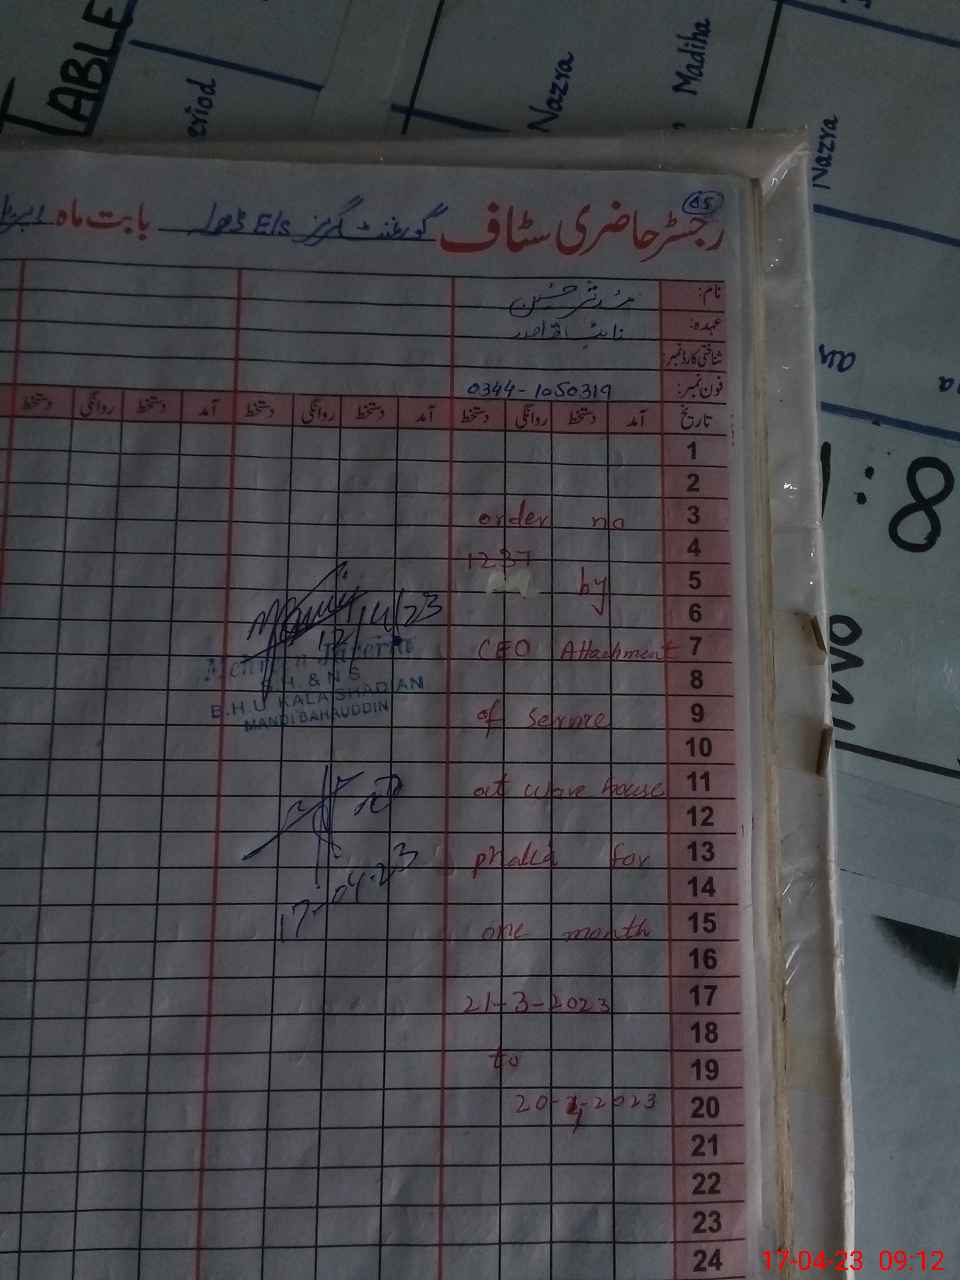 TABLE
Nazra
Madiha
Nazra
05
رجسٹر حاضری سٹاف گورنمنٹ گرلز E/s بابت ماہ
نام:
عہدہ: نائب قاصد
شناختی کارڈ نمبر:
فون نمبر: 0344-1050319
تاریخ آمد دستخط روانگی دستخط آمد دستخط روانگی دستخط آمد دستخط روانگی دستخط
1
2
3 order no
4 1237
5 by
6
7 CEO Attachment
8
9 of service
10
11 at ware house
12
13 phalia for
14
15 one month
16
17 21-3-2023
18
19 to
20 20-4-2023
21
22
23
24
12/14/23
S.H. & N S
B.H.U KALA SHADIAN
MANDI BAHAUDDIN
17-04-23
8
17-04-23 09:12